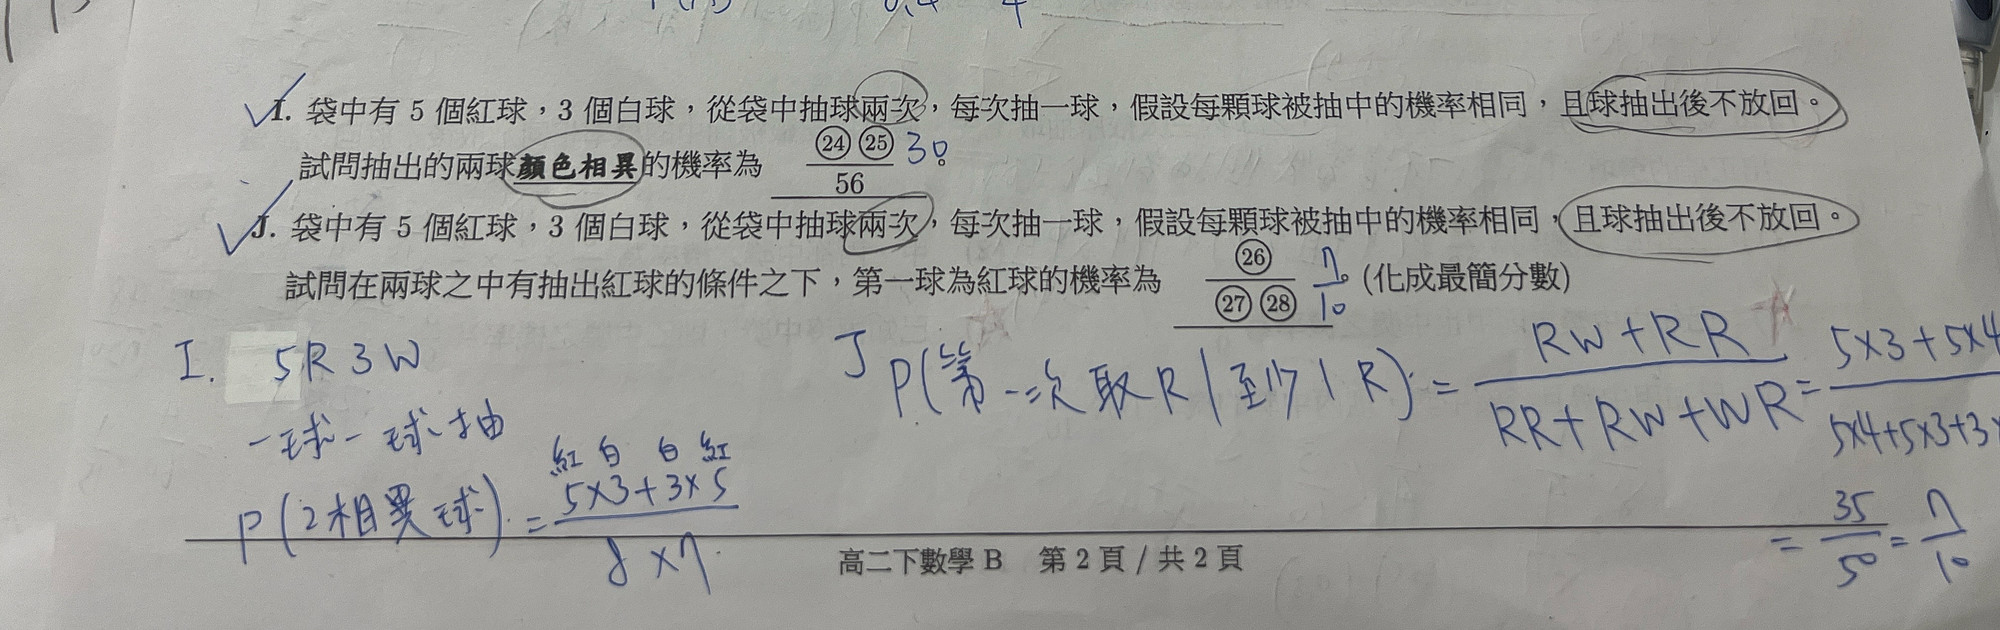 I. 袋中有 5 個紅球，3 個白球，從袋中抽球兩次，每次抽一球，假設每顆球被抽中的機率相同，且球抽出後不放回。
試問抽出的兩球顏色相異的機率為 ㉔㉕/56 30
J. 袋中有 5 個紅球，3 個白球，從袋中抽球兩次，每次抽一球，假設每顆球被抽中的機率相同，且球抽出後不放回。
試問在兩球之中有抽出紅球的條件之下，第一球為紅球的機率為 ㉖/㉗㉘ 7/10 (化成最簡分數)
I. 5R3W
一球一球抽
紅白 白紅
P(2相異球) = 5×3+3×5 / 8×7
J P(第一次取R|至少1R) = RW+RR / RR+RW+WR = 5×3+5×4 / 5×4+5×3+3×
= 35/50 = 7/10
高二下數學 B 第 2 頁 / 共 2 頁